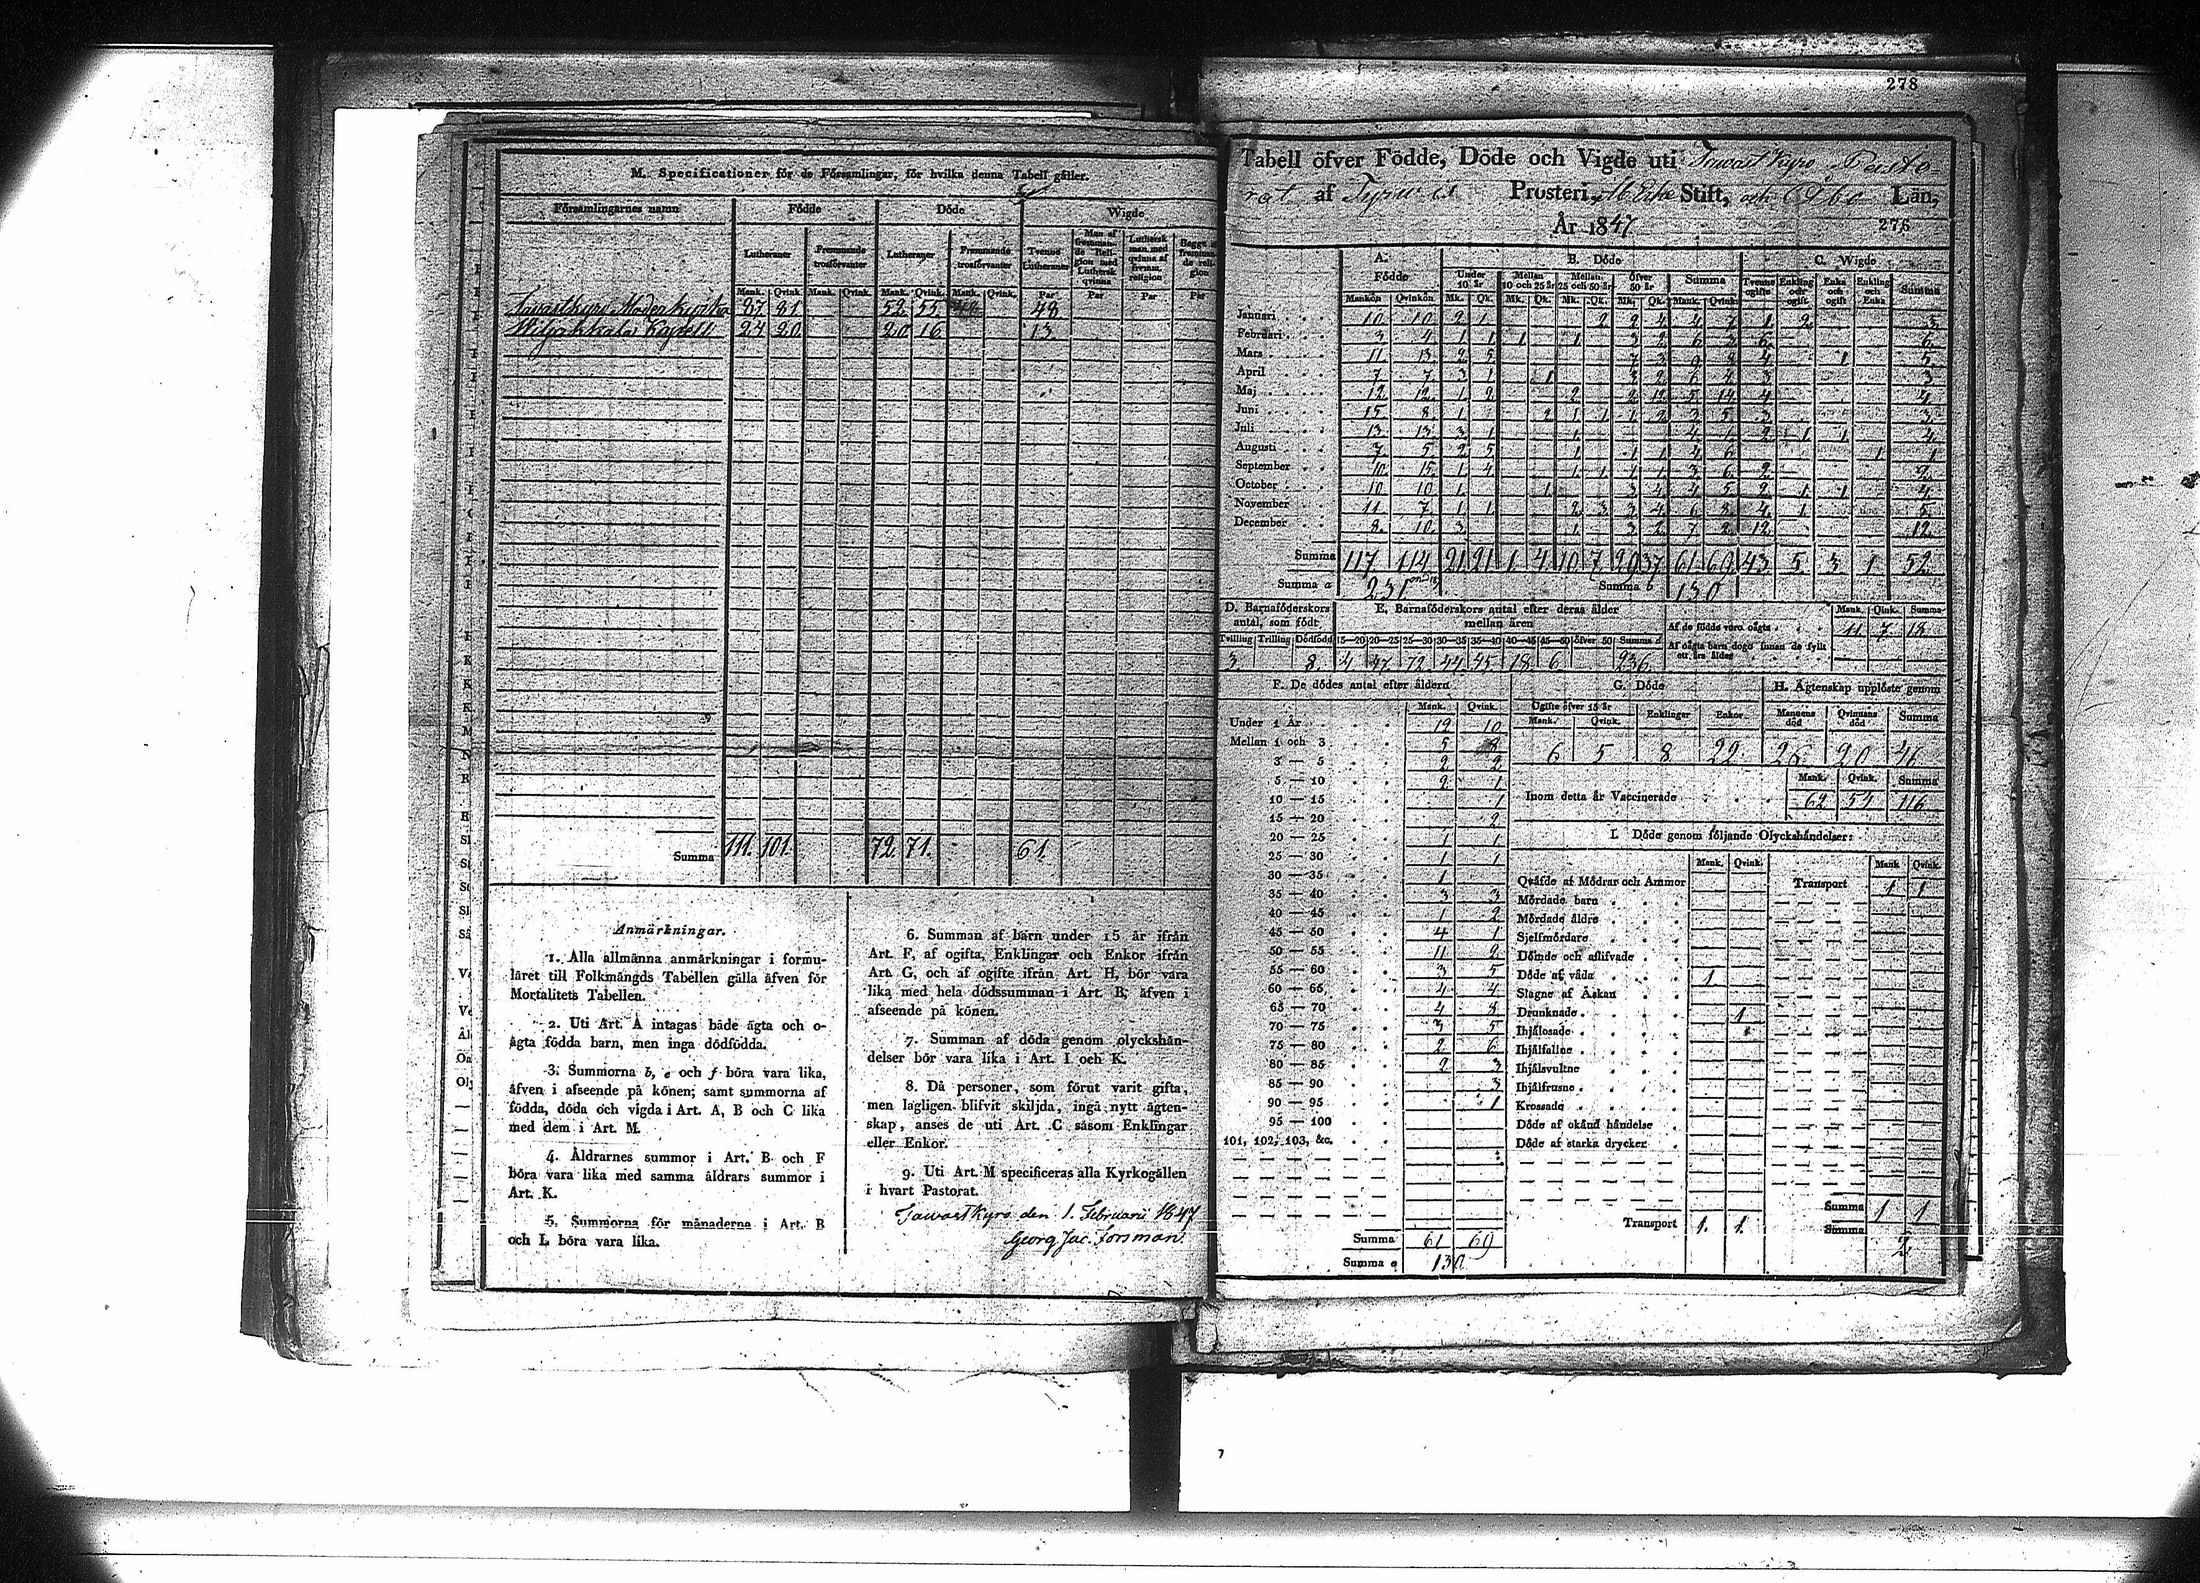 278
M. Specificationer för de Församlingar, för hvilka denna Tabell gäller.
Församlingarnes namn Födde Döde Wigde
Lutheraner Fremmande trosförvanter Lutheraner Fremmande trosförvanter Tvenne Lutheraner Man af fremmande Religion med Luthersk qvinna Luthersk man med qvinna af fremm. religion Begge af fremmande religion
Mank. Qvink. Mank. Qvink. Mank. Qvink. Mank. Qvink. Par Par Par Par
Tavastkyro Moderkyrka 87. 81. 52. 55. 48.
Kapell 24 20. 20. 16. 13.
Summa 111. 101. 72. 71. 61.
Anmärkningar.
1. Alla allmänna anmärkningar i formuläret
till Folkmängds Tabellen gälla äfven för
Mortalitets Tabellen.
2. Uti Art. A intagas både ägta och o-
ägta födda barn, men inga dödfödda.
3. Summorna b, e och f böra vara lika,
äfven i afseende på könen; samt summorna af
födda, döda och vigda i Art. A, B och C lika
med dem i Art. M.
4. Åldrarnes summor i Art. B och F
böra vara lika med samma åldrars summor i
Art. K.
5. Summorna för månaderna i Art. B
och L böra vara lika.
6. Summan af barn under 15 år ifrån
Art. F, af ogifta, Enklingar och Enkor ifrån
Art. G, och af ogifte ifrån Art. H, bör vara
lika med hela dödssumman i Art. B, äfven i
afseende på könen.
7. Summan af döda genom olyckshän-
delser bör vara lika i Art. I och K.
8. Då personer, som förut varit gifta,
men lagligen blifvit skiljda, ingå nytt ägten-
skap, anses de uti Art. C såsom Enklingar
eller Enkor.
9. Uti Art. M specificeras alla Kyrkogällen
i hvart Pastorat.
Tawastkyro den 1. Februari 1847
Georg Jac. Forsman.
Tabell öfver Födde, Döde och Vigde uti Tawast Kyro Pasto-
rat af Prosteri, Stift, och Åbo Län,
År 1847
276
A. Födde B. Döde C. Wigde
Under 10 år Mellan 10 och 25 år Mellan 25 och 50 år öfver 50 år Summa Tvenne ogifte Enkling och ogift Enka och ogift Enkling och Enka Summa
Mankön Qvinkön Mk. Qk. Mk. Qk. Mk. Qk. Mk. Qk. Mank. Qvink.
Januari 10 10 2 1 2 2 4 4 7 1 2 3.
Februari 3 4 1 1 1 1 3 2 6 3 6. 6.
Mars 11. 13. 2 5 7 3 9 8 4 1 5.
April 7 7. 3 1 1 3 2 6 4 3 3
Maj 12. 12. 1 2 2 2 12 5 14 4 4.
Juni 15. 8. 1 2 1 1 1 2 3 5 3. 3.
Juli 13 13 3 1 1. 4 1. 2 1 1. 4.
Augusti 7. 5. 2 5 1 1 1 4 6 1. 1
September 10. 15. 1 4 1 1 1 1. 3 6 2 2.
October 10 10 1. 1 3 4 4 5 2. 1 1 4.
November 11. 7. 1 1 2 3 3 4 6 8 4. 1 5.
December 8. 10 3 1 3 2 7 2 12 12.
Summa 117. 114. 21 21 1. 4. 10. 7. 29 37 61. 69. 43. 5. 3. 1. 52.
Summa a 231 Summa b 130
D. Barnaföderskors antal, som födt
Tvilling Trilling Dödfödd
3. 8.
E. Barnaföderskors antal efter deras ålder mellan åren
15—20 20—25 25—30 30—35 35—40 40—45 45—50 öfver 50 Summa d
4 47. 72. 44 45 18. 6 236.
Mank. Qink. Summa
Af de födde voro oägta 11. 7. 18
Af oägta barn dogo innan de fyllt ett års ålder
F. De dödes antal efter åldern
Mank. Qvink.
Under 1 År 12 10
Mellan 1 och 3 5 8
3 — 5 2 2
5 — 10 2 1
10 — 15 1
15 — 20 2
20 — 25 1 1
25 — 30 1 1
30 — 35 1
35 — 40 3 3
40 — 45 1 2
45 — 50 4 1
50 — 55 11 2
55 — 60 3 5
60 — 65 4 4
65 — 70 4 8
70 — 75 3 5
75 — 80 2 6
80 — 85 2 3
85 — 90 3
90 — 95 1
95 — 100
101, 102, 103, &c.
Summa 61 69
Summa e 130
G. Döde
Ogifte öfver 15 år Mank. Qvink. Enklingar Enkor
6 5 8 22.
H. Ägtenskap upplöste genom
Mannens död Qvinnans död Summa
26. 20 46
Mank. Qvink. Summa
Inom detta år Vaccinerade 62 54 116
I. Döde genom följande Olyckshändelser:
Mank. Qvink. Mank Qvink.
Qväfde af Mödrar och Ammor Transport 1 1
Mördade barn
Mördade äldre
Sjelfmördare
Dömde och aflifvade
Döde af våda 1.
Slagne af Åskan
Drunknade 1
Ihjälosade
Ihjälfallne
Ihjälsvultne
Ihjälfrusne
Krossade
Döde af okänd händelse
Döde af starka drycker
Transport 1. 1.
Summa 1 1
Summa 2